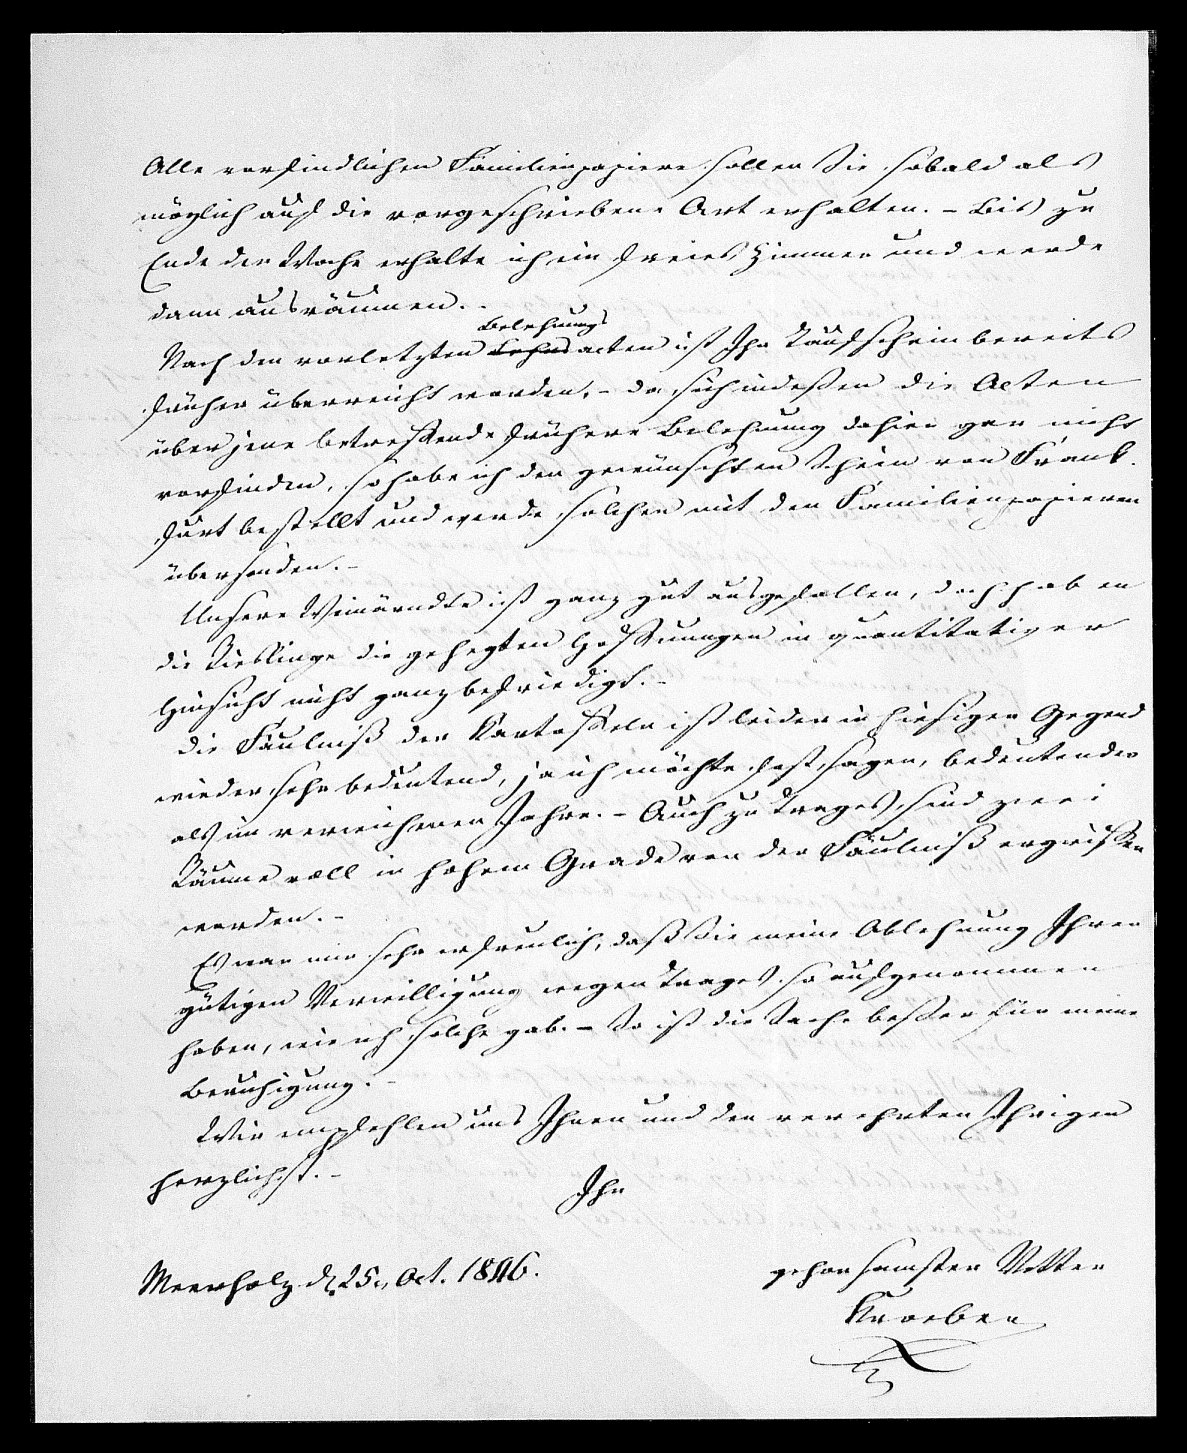 Alle vorfindlichen Familienpapiere sollen Sie sobald als
möglich auf die vorgeschriebene Art erhalten. - Bis zu
Ende der Woche erhalte ich ein freies Zimmer und werde
dann ausräumen. -
Belehnungs
Nach den vorletzten Lehnsacten ist Ihr Taufschein bereits
früher überreicht worden, - da sich indeßen die Acten
über jene betreffende frühere Belehnung dahier gar nicht
vorfinden, so habe ich den gewünschten Schein von Frank-
furt bestellt und werde solchen mit den Familienpapieren
übersenden. -
Unsere Weinärndte ist ganz gut ausgefallen, doch haben
die Rieslinge die gehegten Hoffnungen in quantitativer
Hinsicht nicht ganz befriedigt. -
Die Fäulniß der Kartoffeln ist leider in hiesiger Gegend
wieder sehr bedeutend, ja ich möchte fast sagen, bedeutender
als im verwichenen Jahre. - Auch zu Trages sind zwei
Räume voll in hohem Grade von der Fäulniß ergriffen
worden. -
Es war mir sehr erfreulich, daß Sie meine Ablehnung Ihrer
gütigen Verwilligung wegen Trages so aufgenommen
haben, wie ich solche gab. - So ist die Sache beßer für meine
Beruhigung. -
Wir empfehlen uns Ihnen und den verehrten Ihrigen
herzlichst. -
Ihr
Meerholz d. 25. Oct. 1846.
gehorsamster Vetter
Kroeber